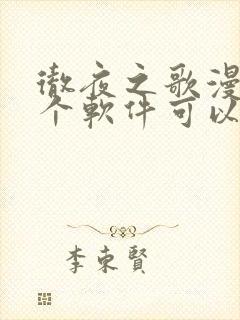 徹夜之歌漫
个軟件可以
李東賢